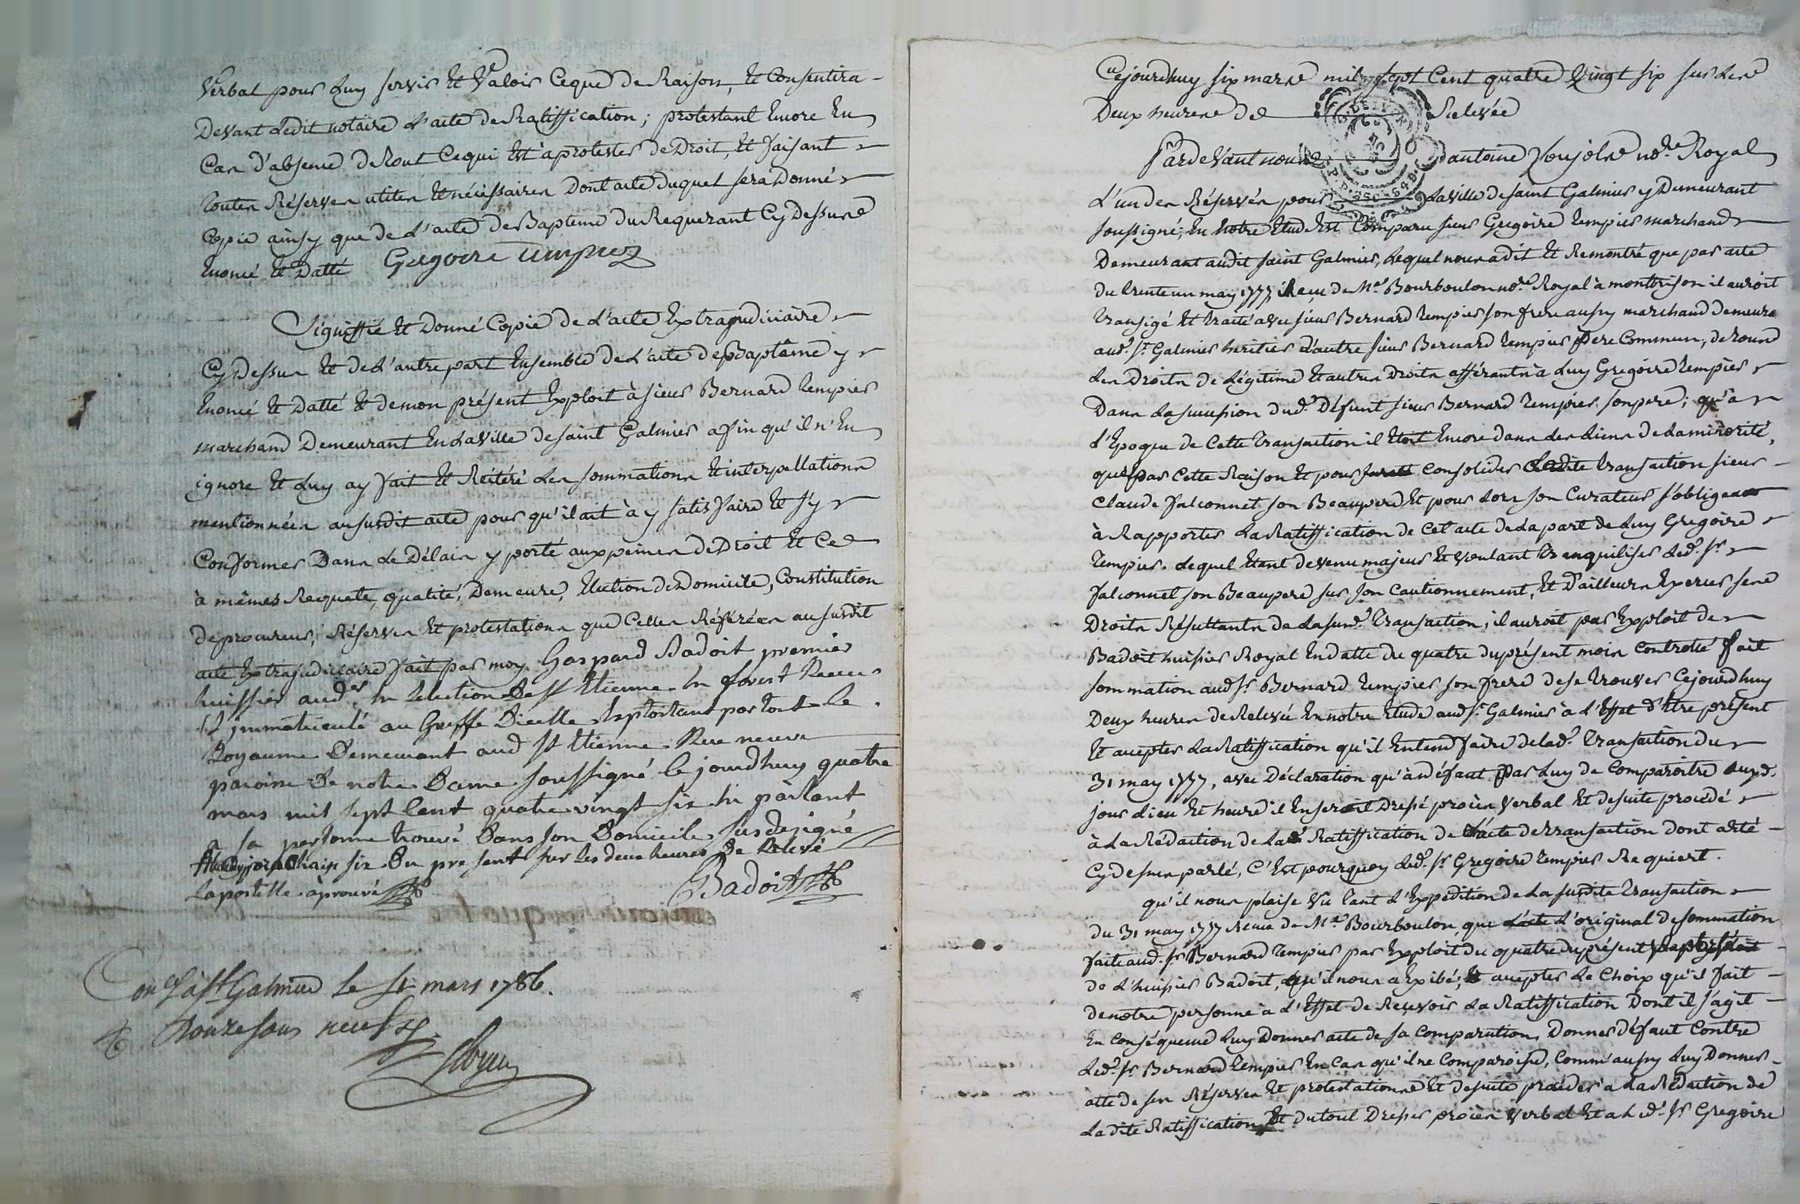 Verbal pour Luy servir Et Valoir Ceque de Raison, Et Consentira
Devant Ledit notaire L'acte de Ratiffication; protestant Encore En
Cas d'absence de Tout Cequi Est à protester de Droit, Et faisant
toutes Réserves utiles Et nécéssaires Dont acte Duquel sera Donné
Copie ainsy que de L'acte de Baptême du Requerant Cy Dessus
Enoncé Et Datté Gregoire Tempier
Signiffié Et Donné Copie de L'acte Extrajudiciaire
Cy Dessus Et de L'autre part Ensemble de L'acte de Baptême y
Enoncé Et Datté Et de mon présent Exploit à sieur Bernard Tempier
marchand Demeurant En La Ville de saint Galmier afin qu'il n'En
ignore Et Luy ay fait Et Réitéré Les sommations Et interpellations
mentionnées au susdit acte pour qu'il ait à y satisfaire Et s'y
Conformer Dans Le Délais y porté aux peines de Droit Et Ce
à mêmes Requete, qualité, Demeure, Election de Domicile, Constitution
de procureur, Réserves Et protestations que Celles Référées au susdit
acte Extrajudiciaire fait par moy Gaspard Badoit premier
huissier aud.er En Lelection De St Etienne En forest Receu
Et immatriculé au Greffe Dicelle Exploitant par tout le
Royaume Demeurant aud St Etienne Rue neuve
paroisse De notre Dame soussigné le jourdhuy quatre
mars mil sept Cent quatre vingt six En parlant
a sa personne trouvé Dans son Domicile sus designé
six Du present sur les deux heures De Relevé
La postille aprouvé Badoit
Con.lé à St Galmier le 4 mars 1786.
R. Douze sous neuf d.
Cejourdhuy six mars mil sept Cent quatre Vingt six sur Les
Deux heures de Relevée
Pardevant nous antoine noʳᵉ Royal
L'un des Réservés pour La Ville de saint Galmier y Demeurant
soussigné, En Notre Etude Est Comparu sieur Gregoire Tempier marchand
Demeurant audit saint Galmier, Lequel nous a dit Et Remontré que par acte
du trente un may 1777 Reçu de Mᵉ Bourboulon noʳᵉ Royal à montbrison il auroit
transigé Et traité avec sieur Bernard Tempier son frere aussy marchand Demeurᵗ
aud. Sᵗ Galmier heritier d'autre sieur Bernard Tempier Pere Commun, de Tous
Les Droits de Légitime Et autres Droits afférants à Luy Gregoire Tempier
Dans La succession dud. Défunt sieur Bernard Tempier son pere; qu'à
L'Epoque de Cette Transaction il Etoit Encore dans Les Liens de La minorité,
que par Cette Raison Et pour Consolider Ladite transaction sieur
Claude falconnet son Beaupere Et pour Lors son Curateur s'obligea
à Rapporter La Ratiffication de Cet acte de La part de Luy Gregoire
Tempier. Lequel Etant devenu majeur Et Voulant tranquiliser Led. sʳ
falconnet son Beaupere sur son Cautionnement, Et D'ailleurs Exercer ses
Droits Résultants de La susd. Transaction, il auroit par Exploit de
Badoit huissier Royal En datte du quatre du présent mois Controllé fait
sommation aud. sʳ Bernard Tempier son frere de se trouver Cejourdhuy
Deux heures de Relevée En notre Etude aud. sᵗ Galmier à L'Effet d'être présent
Et accepter La Ratification qu'il Entend faire de lad. Transaction du
31 may 1777, avec Déclaration qu'à défaut Par Luy de Comparoitre auxd.
jour Lieu Et heure il En seroit Dressé procès Verbal Et de suite procédé
à La Rédaction de La Ratiffication de L'acte de Transaction dont a été
Cy Dessus parlé, C'Est pourquoy Led. sʳ Gregoire Tempier Requiert.
qu'il nous plaise Vu tant L'Expédition de La susdite transaction
du 31 may 1777 Reçue de Mᵉ Bourboulon, que L'original de sommation
faite aud. sʳ Bernard Tempier par Exploit du quatre du présent
de L'huissier Badoit, qu'il nous a Exibé, accepter Le Choix qu'il fait
de notre personne à L'Effet de Recevoir La Ratiffication Dont il s'agit
En Conséquence Luy Donner acte de sa Comparution, Donner défaut Contre
Led. sʳ Bernard Tempier En Cas qu'il ne Comparoisse, Comm'aussy Luy Donner
acte de ses Réserves Et protestations Et de suite procéder à La Rédaction de
La dite Ratiffication Et du tout Dresser procès Verbal Et a Led. sʳ Gregoire